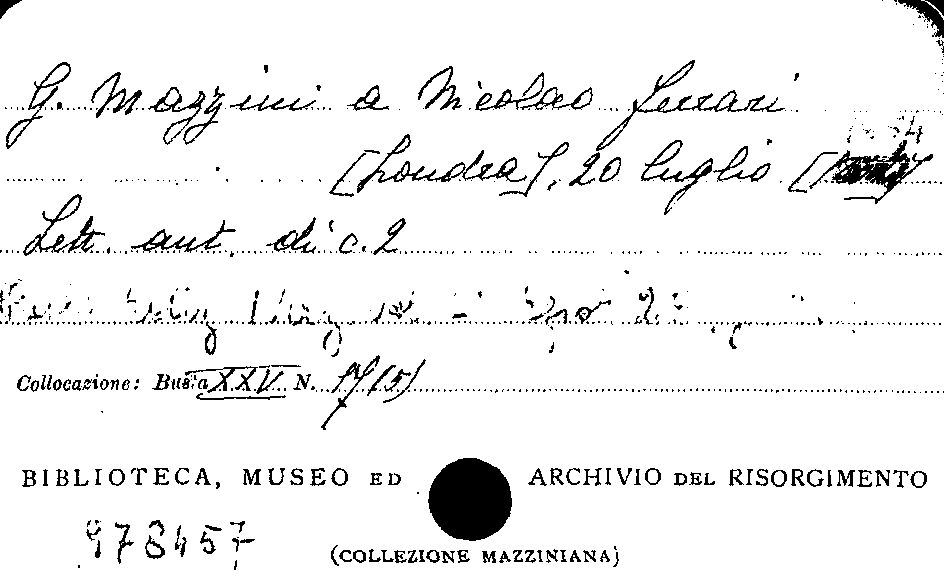 G. Mazzini a Nicolao Ferrari
[Londra], 20 luglio
Lett. aut. di c. 2
Collocazione: Busta XXV N. 17(5)
BIBLIOTECA, MUSEO ED ARCHIVIO DEL RISORGIMENTO
978457
(COLLEZIONE MAZZINIANA)